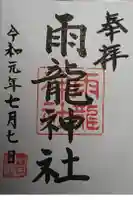 奉拝
雨龍神社
令和元年七月七日